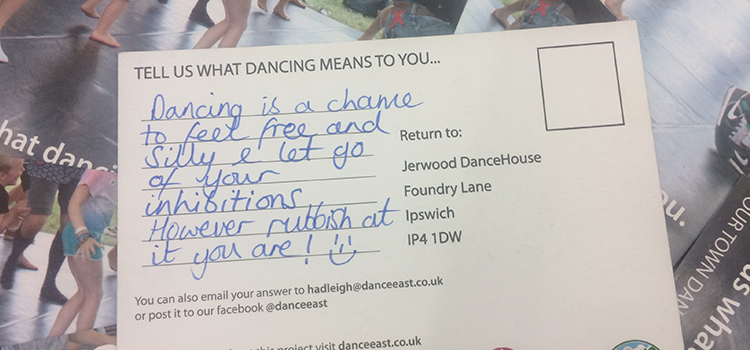 TELL US WHAT DANCING MEANS TO YOU...
Dancing is a chance
to feel free and
silly & let go
of your
inhibitions
However rubbish at
it you are! :)
Return to:
Jerwood DanceHouse
Foundry Lane
Ipswich
IP4 1DW
You can also email your answer to hadleigh@danceeast.co.uk
or post it to our facebook @danceeast
this project visit danceeast.co.uk
hat danc
us what
OUR TOWN DAN
u.